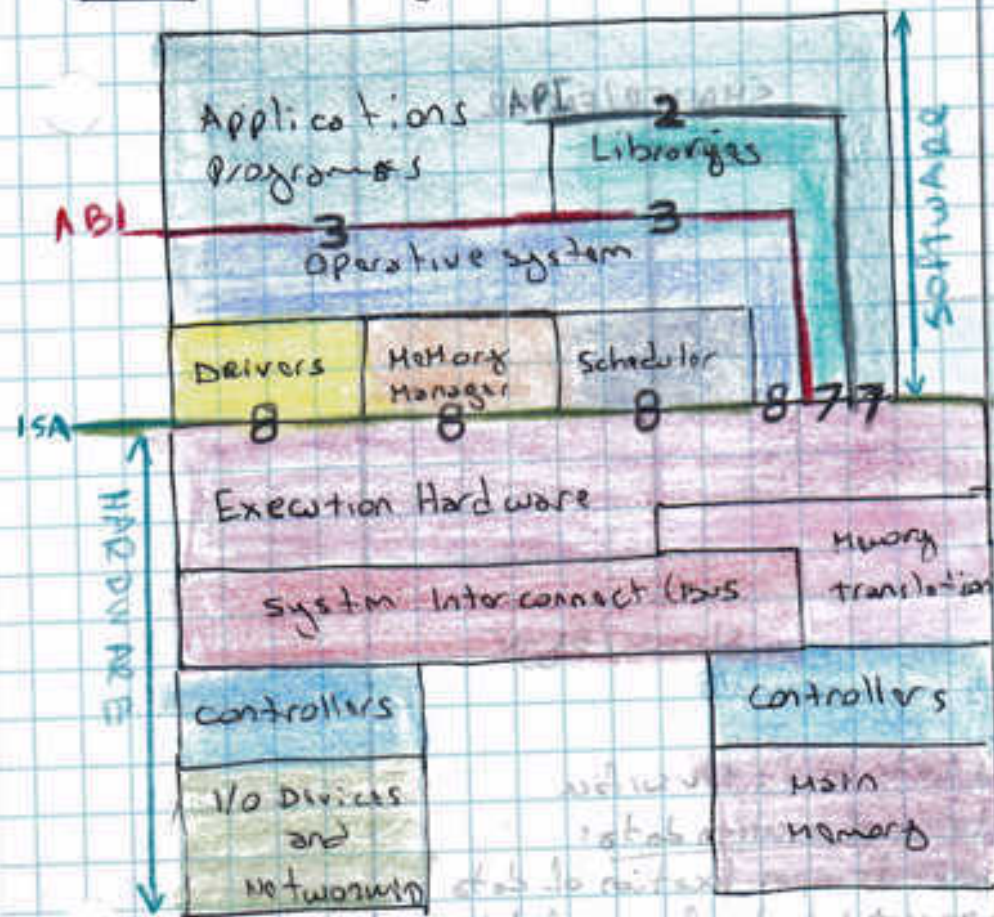 API
Applications
2
Programs
Libraries
ABI
3
3
Operative system
SOFTWARE
Drivers
Memory
Manager
Scheduler
ISA
8
8
8
8
7
7
HARDWARE
Execution Hardware
Memory
translation
System Interconnect (Bus
controllers
controllers
I/O Divices
and
Networking
Main
Memory